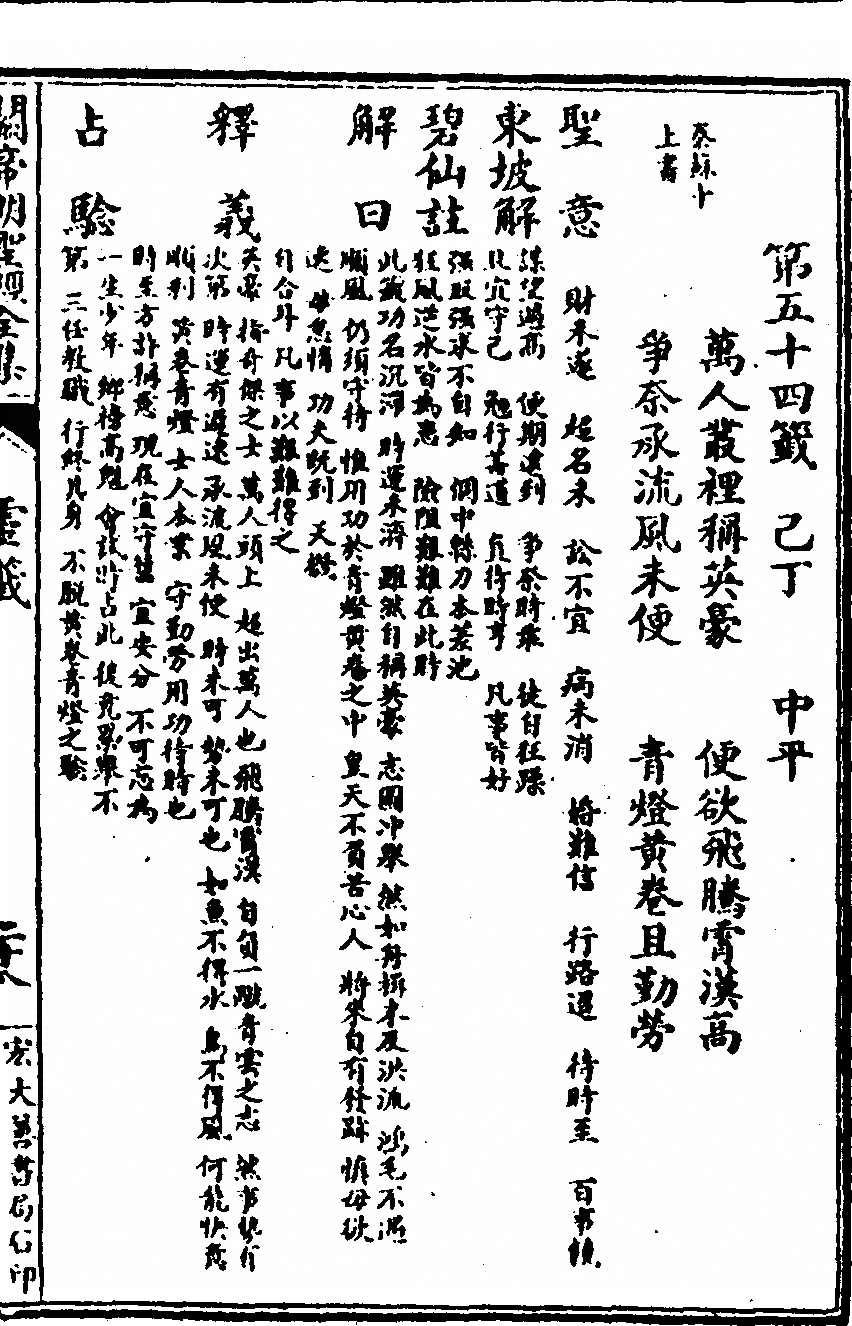 第五十四籤　己丁　中平
蘇十
上書
萬人叢裡稱英豪　便欲飛騰霄漢高
爭奈承流風未便　青燈黃卷且勤勞
聖意　財未遂　名未　訟不宜　病未消　婚難信　行路迴　待時至　百事順
東坡解　謀望過高　便期遽到　爭奈時乖　徒自狂躁
且宜守己　勉行善道　直待時亨　凡事皆好
碧仙註　強取強求不自知　個中緣力本差池
狂風逆水皆為患　險阻艱難在此時
解曰　此籤功名沉滯　時運未濟　雖然自稱英豪　志圖沖舉　然如舟楫未及洪流　鴻毛不遇
順風　仍須守待　惟用功於青燈黃卷之中　皇天不負苦心人　將來自有發跡　慎毋欲
速　毋怠惰　功夫既到　天
自合斗　凡事以艱難得之
釋義　英豪　指奇傑之士　萬人頭上　超出萬人也　飛騰霄漢　自負一飛青雲之志　然事勢有
次第　時運有遲速　承流風未便　時未可　勢未可也　如魚不得水　鳥不得風　何能快意
順利　黃卷青燈　士人本業　守勤勞用功待時也
時至方許稱意　現在宜守舊　宜安分　不可忘為
占驗　一生少年　鄉榜高魁　會試時占此　後竟累舉不
第　三任教職　行終凡身　不脫黃卷青燈之驗
關帝明聖經全集
靈籤
宏大善書局石印